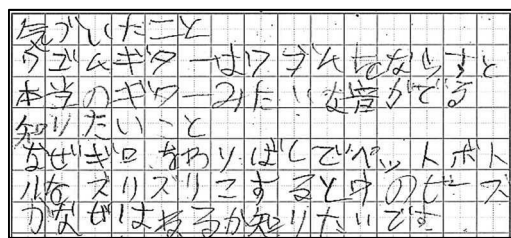 気づいたこと
ワゴムギターはワゴムをならすと
本当のギターみたいな音がでる
知りたいこと
なぜギロ をわりばしでペットボト
ルを ズリズリこするとのビーズ
がなぜはねるか知りたいです